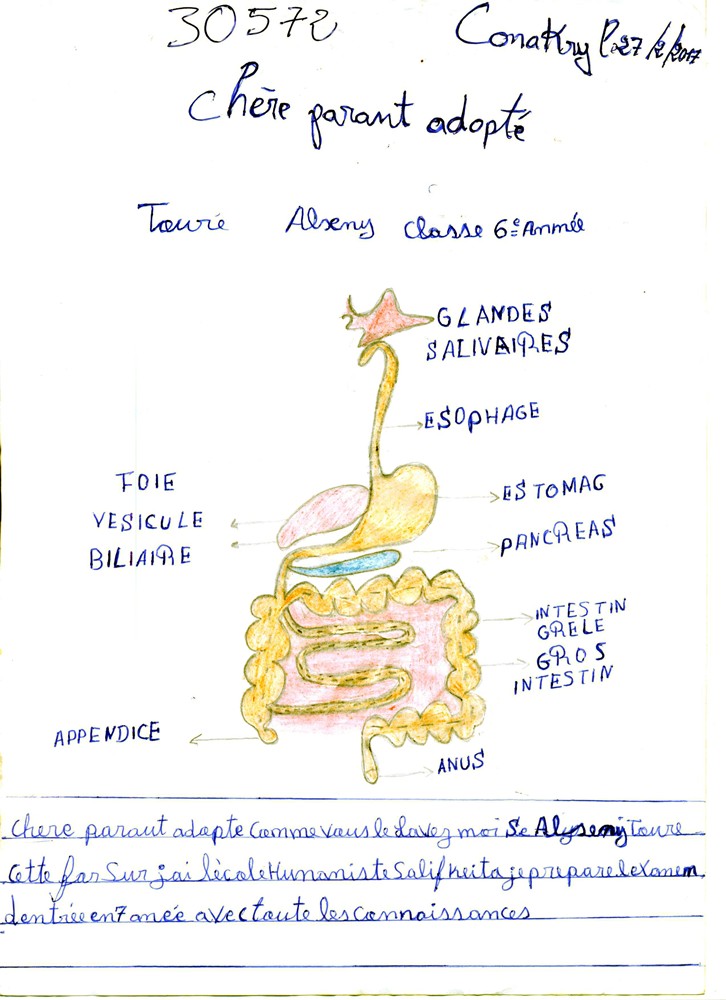 30572
Conakry le 27/2/2017
Chère parant adopté
Touré Alseny classe 6e Année
GLANDES
SALIVAIRES
ESOPHAGE
FOIE
VESICULE
BILIAIRE
ESTOMAG
PANCREAS
INTESTIN
GRELE
GROS
INTESTIN
APPENDICE
ANUS
chere parant adapte Comme vous le savez moi Se Alyseny Toure
cette far Sur j'ai l'école Humaniste Salif Keita je prepare lexamem
dentrée en 7 anée avec toute les connaissances